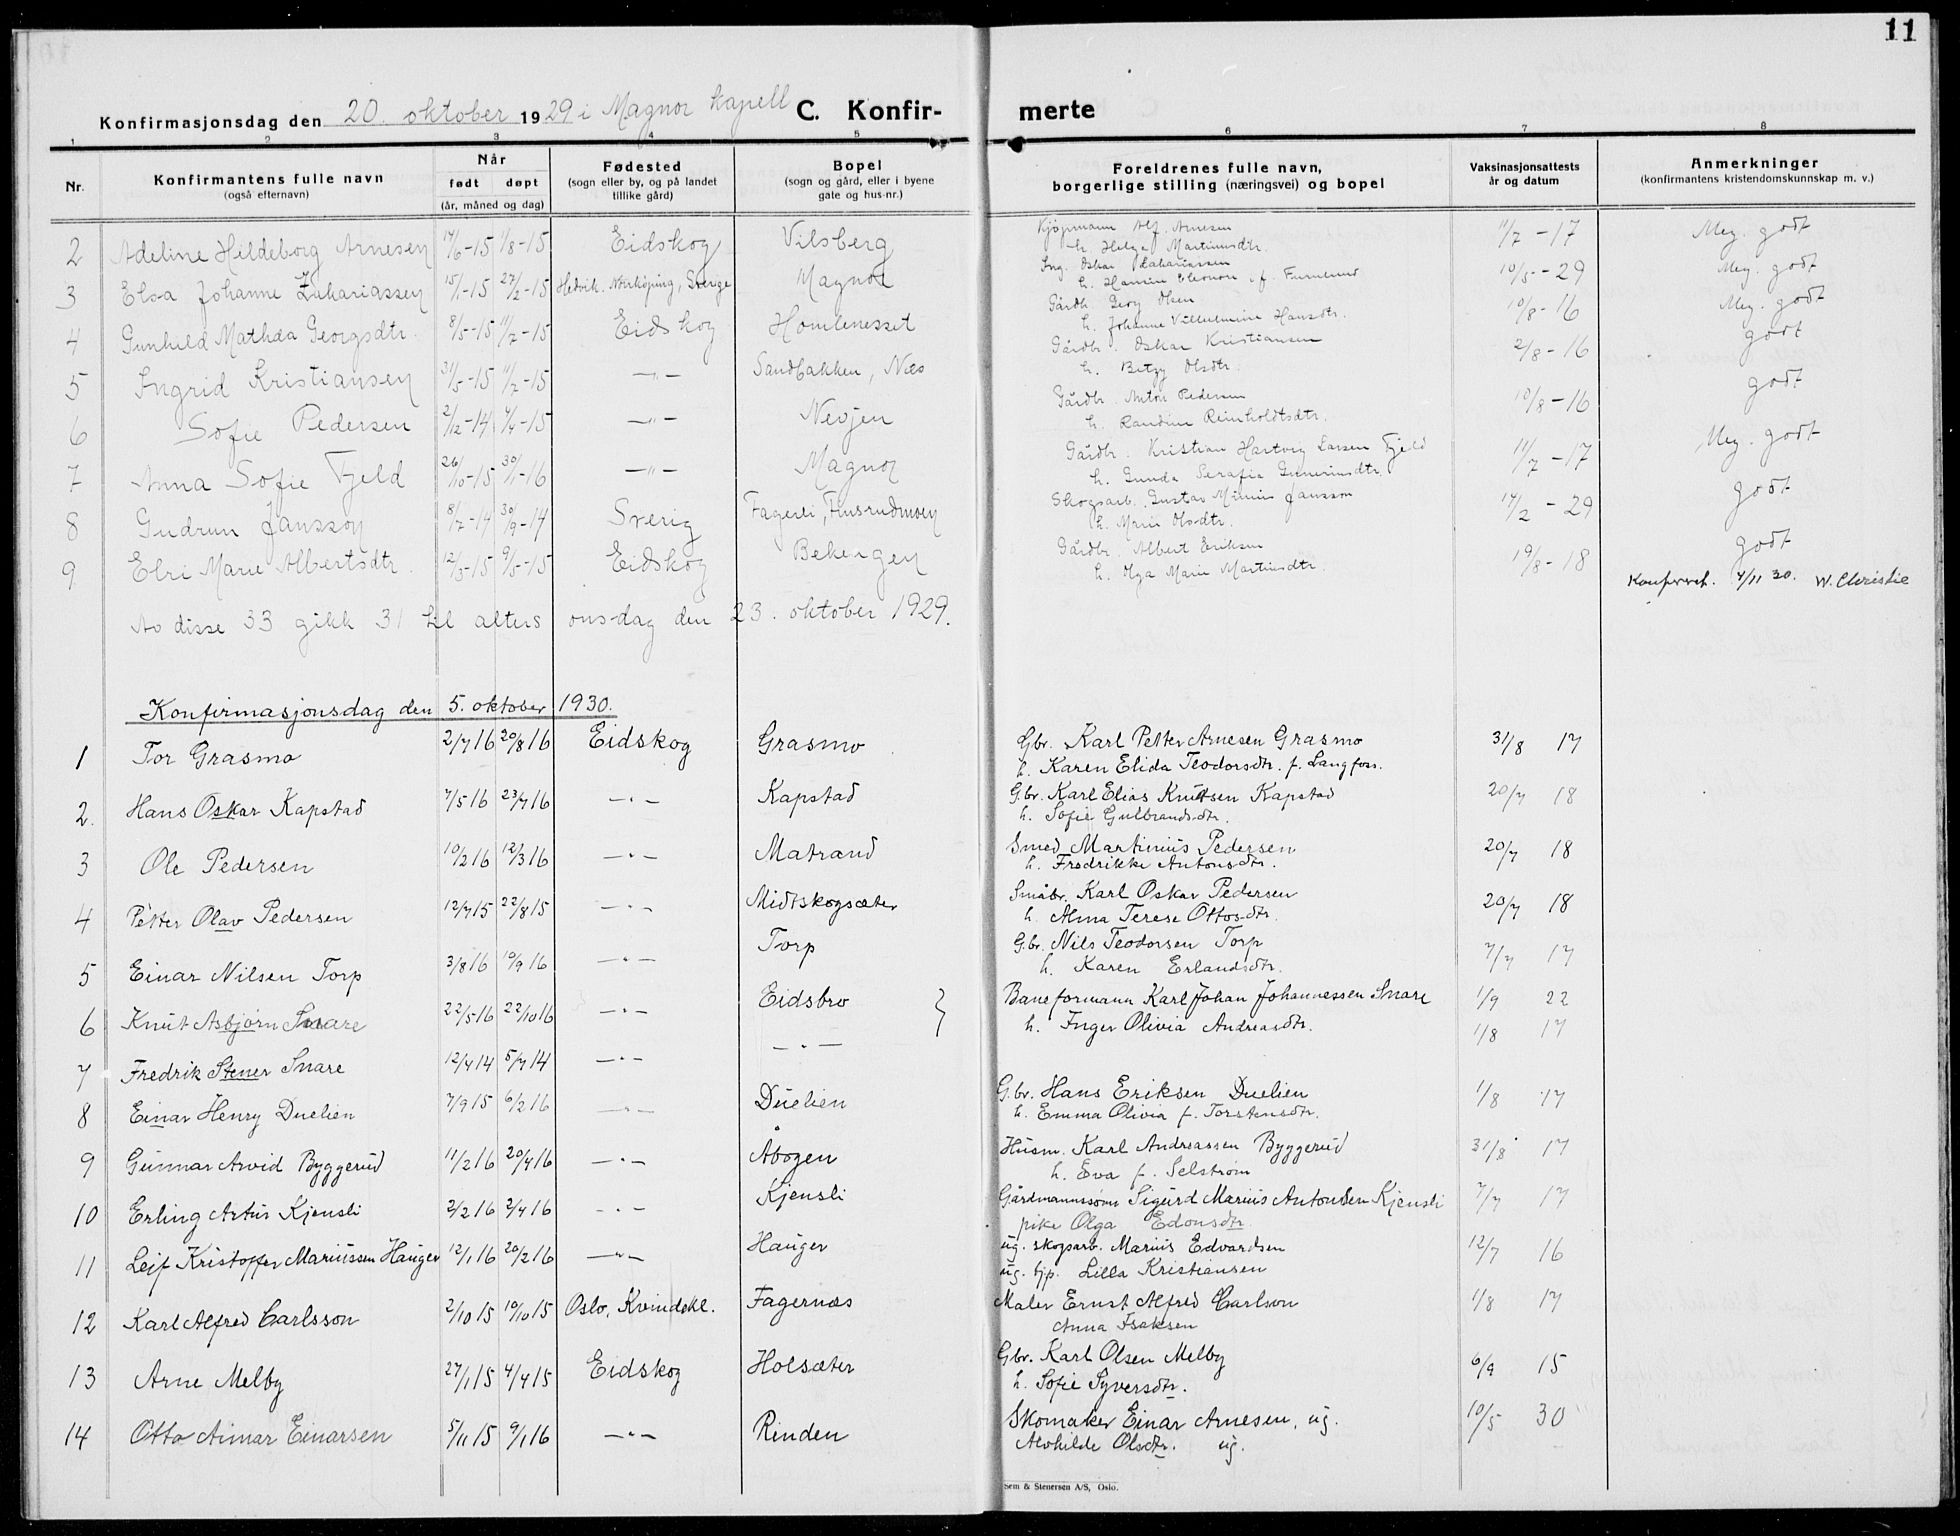 11
Konfirmasjonsdag den 20. oktober 1929 i Magnor kapell C. Konfir- merte
1 2 3 4 5 6 7 8
Nr. Konfirmantens fulle navn (også efternavn) Når født døpt (år, måned og dag) Fødested (sogn eller by, og på landet tillike gård) Bopel (sogn og gård, eller i byene gate og hus-nr.) Foreldrenes fulle navn, borgerlige stilling (næringsvei) og bopel Vaksinasjonsattests år og datum Anmerkninger (konfirmantens kristendomskunnskap m. v.)
2 Adeline Hildeborg Arnesen 14/6-15 1/8-15 Eidskog Vilsberg Kjøpmann Alf. Arnesen 11/7-17 Meg. godt
h. Helga Martinusdtr.
3 Elsa Johanne Zakariassen 15/1-15 27/2-15 Hedvik. Norrköping, Sverige Magnor Ing. Oskar Zakariassen 10/5-29 Meg. godt
h. Hansine Eleonore f.
4 Gunhild Mathea Georgsdtr. 8/5-15 11/7-15 Eidskog Homlenesset Gårdbr. Georg Olsen 10/8-16 Meg. godt
h. Johanne Vilhelmine Hansdtr.
5 Ingrid Kristiansen 31/5-15 11/7-15 -"- Sandbakken, Næs Gårdbr. Oskar Kristiansen 2/8-16 godt
h. Betzy Olsdtr.
6 Sofie Pedersen 2/12-14 4/4-15 -"- Nevjen Gårdbr. Anton Pedersen 10/8-16 godt
h. Randine Reinholdtsdtr.
7 Anna Sofie Fjeld 26/10-15 30/1-16 -"- Magnor Gårdbr. Kristian Hartvig Larsen Fjeld 11/7-17 Meg. godt
h. Gunda Serafia Gunerusdtr.
8 Gudrun Jansson 8/7-14 30/9-14 Sverig Fagerli, Finsrudmoen Skogsarb. Gustav Jansson 14/2-29 godt
h. Marie Olsdtr.
9 Elri Marie Albertsdtr. 12/3-15 9/5-15 Eidskog Bekengen Gårdbr. Albert Eriksen 19/8-18 godt
h. Olga Marie Martinsdtr.
Konferert. 4/11 30. W. Christie
Av disse 33 gikk 31 til alters onsdag den 23. oktober 1929.
Konfirmasjonsdag den 5. oktober 1930.
1 Tor Grasmo 2/7 16 20/8 16 Eidskog Grasmo Gbr. Karl Petter Arnesen Grasmo 31/8 17
h. Karen Elida Teodorsdtr. f. Langfoss.
2. Hans Oskar Kapstad 7/5 16 23/7 16 -"- Kapstad G.br. Karl Elias Knutsen Kapstad 20/7 18
h. Sofie Gulbrandsdtr.
3 Ole Pedersen 10/2 16 12/3 16 -"- Matrand Smed Martinius Pedersen 20/7 18
h. Fredrikke Antonsdtr.
4 Petter Olav Pedersen 12/7 15 22/8 15 -"- Midtskogsæter Småbr. Karl Oskar Pedersen 20/7 18
h. Alma Terese Ottosdtr.
5 Einar Nilsen Torp 3/8 16 10/9 16 -"- Torp G.br. Nils Teodorsen Torp 7/7 17
h. Karen Erlandsdtr.
6 Knut Asbjørn Snare 22/5 16 22/10 16 -"- Eidsbro } Baneformann Karl Johan Johannessen Snare 1/9 22
h. Inger Olivia Andreasdtr. 1/8 17
7 Fredrik Stener Snare 12/4 14 5/7 14 -"- -"-
8 Einar Henry Duelien 7/9 15 6/2 16 -"- Duelien G.br. Hans Eriksen Duelien 1/8 17
h. Emma Olivia f. Torstensdtr.
9 Gunnar Arvid Byggerud 11/2 16 20/4 16 -"- Åbogen Husm. Karl Andreassen Byggerud 31/8 17
h. Eva f. Selstrøm
10 Erling Artur Kjensli 2/2 16 2/4 16 -"- Kjensli Gårdmannssønn Sigurd Marius Antonsen Kjensli 7/7 17
pike Olga Edonsdtr.
11 Leif Kristoffer Mariussen Hauger 12/1 16 20/2 16 -"- Hauger ug. skogsarb. Marius Edvardsen 12/7 16
ug. tjp. Lilla Kristiansen
12 Karl Alfred Carlsson 2/10 15 10/10 15 Oslo, Kvindekl. Fagernæs Maler Ernst Alfred Carlson 1/8 17
Anna Isaksen
13 Arne Melby 27/1 15 4/4 15 Eidskog Holsæter Gbr. Karl Olsen Melby 6/9 15
h. Sofie Syversdtr.
14 Otto Aimar Einarsen 5/11 15 9/1 16 -"- Rinden Skomaker Einar Arnesen, ug. 10/5 30
Alvhilde Olsdtr. ug.
Sem & Stenersen A/S, Oslo.